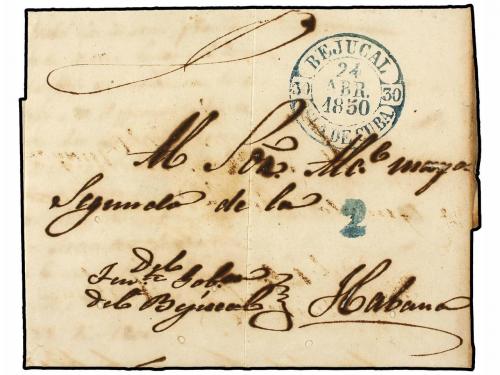 BEJUCAL
24
ABR.
1850
30 30
ISLA DE CUBA
Al Sōr. Alc.e mayor
Segundo de la
2
Del
Ten.te Gob.or
del Bejucal
Habana